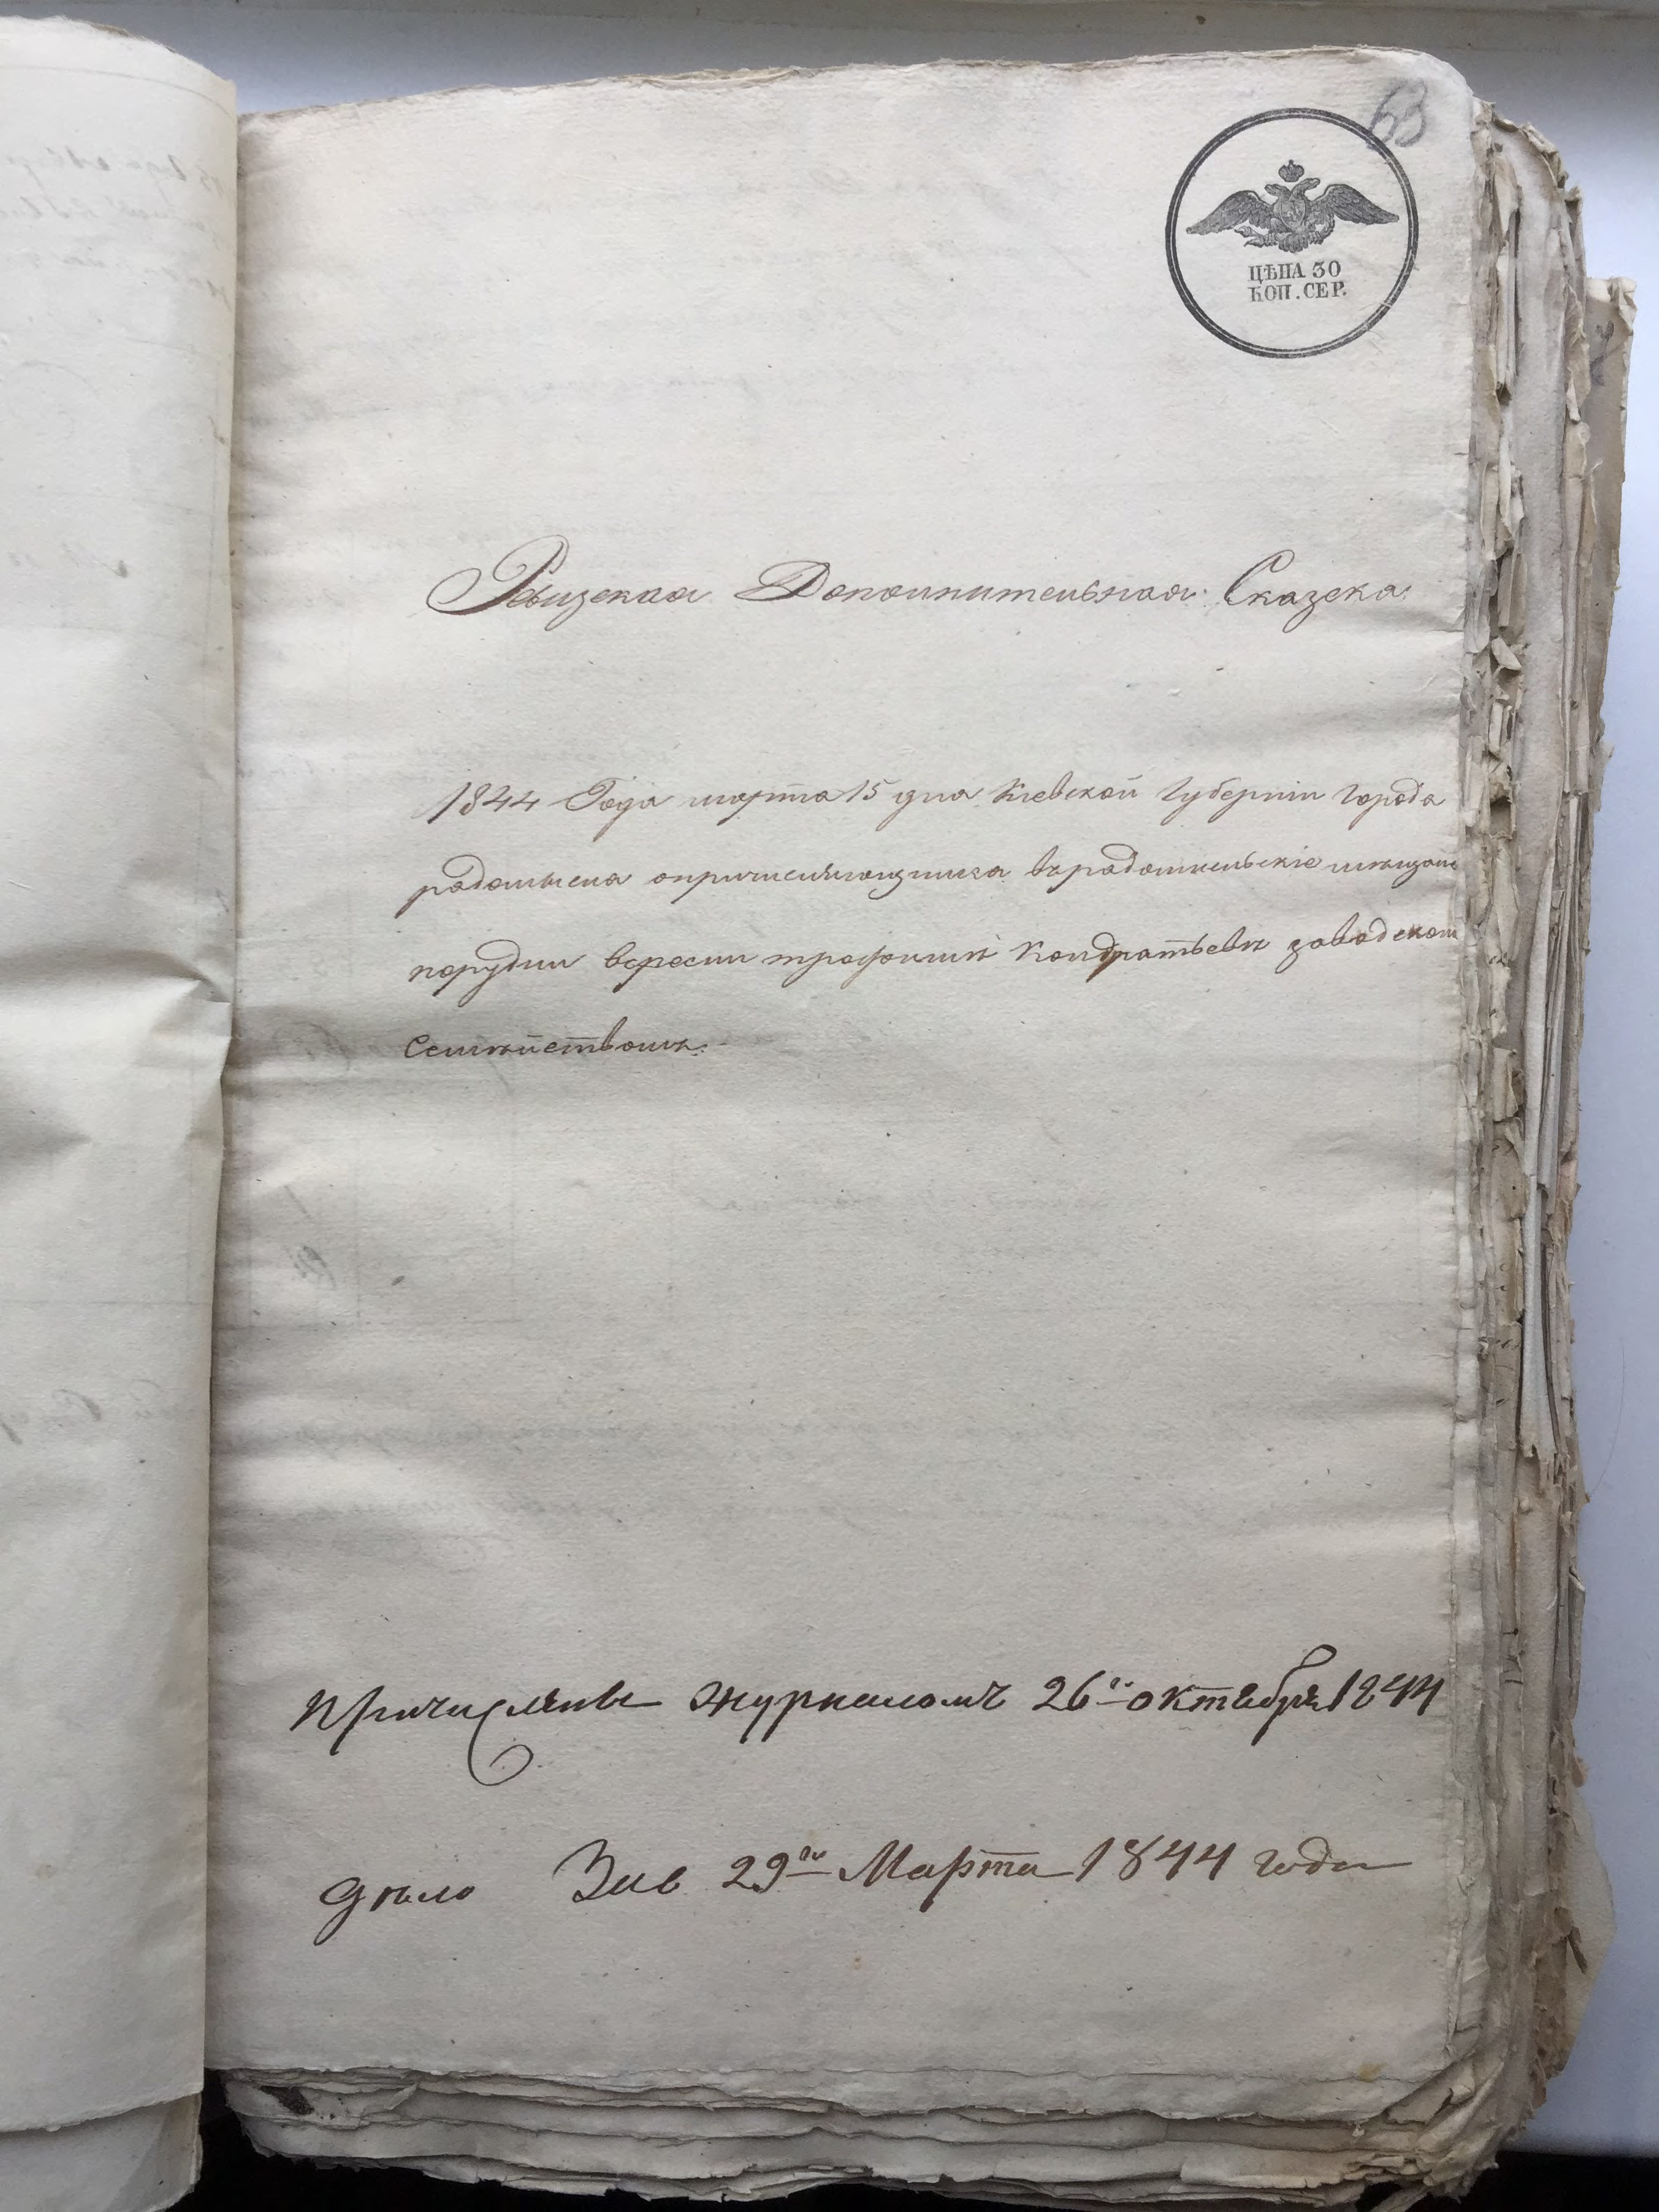 63
ЦѢНА 30
КОП. СЕР.
Ревизская Дополнительная Сказска
1844 Года марта 15 дня Кіевской Губерніи Города
радомысла опричисляющимся въ радомысльскіе мѣщане
Трофимъ Кондратьевъ заводском
Семѣйствомъ.
Причислены журналомъ 26го октября 1844
дѣло 29го Марта 1844 года